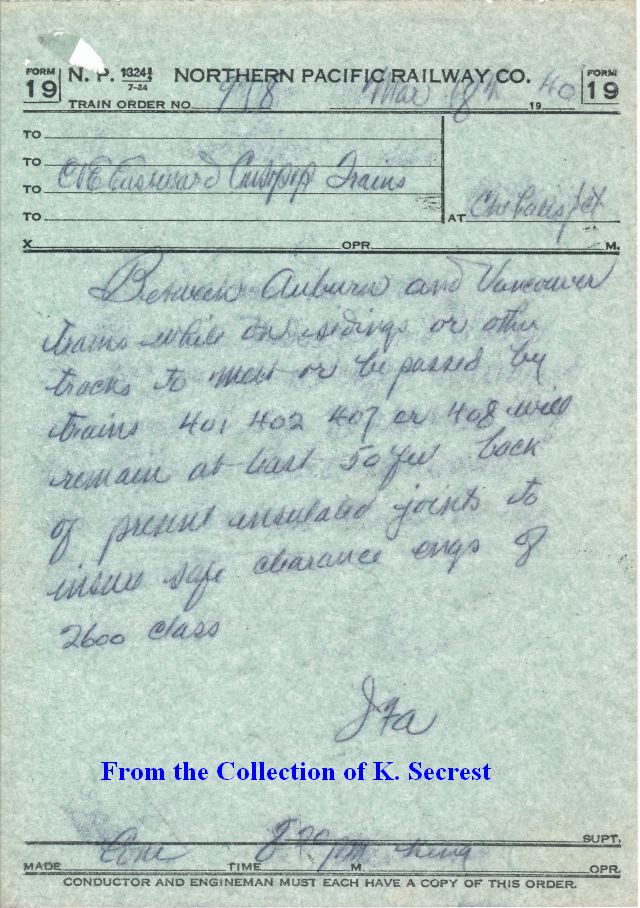 FORM 19 N. P. 1324½ 7-24 NORTHERN PACIFIC RAILWAY CO. FORM 19
TRAIN ORDER NO. 938 Mar 18th 1940
TO
TO C&E Eastward Trains
TO
TO AT Chehalis Jct
X OPR. M.
Between Auburn and Vancouver
trains while on sidings or other
tracks to meet or be passed by
trains 401 402 407 or 408 will
remain at least 50 feet back
of present insulated joints to
insure safe clearance engs of
2600 class
JFA
From the Collection of K. Secrest
SUPT.
MADE Com TIME 8 PM M. King OPR.
CONDUCTOR AND ENGINEMAN MUST EACH HAVE A COPY OF THIS ORDER.